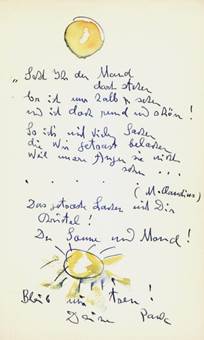 „Seht Ihr den Mond
dort stehen
Er ist nur halb zu sehen
und ist doch rund und schön!
So sind wohl viele Sachen
die wir getrost belachen
weil unsere Augen sie nicht
sehn ...
(M. Claudius)
Das getroste Lachen mit Dir
Du Sonne und Mond!
Bleib mir treu!
Deine